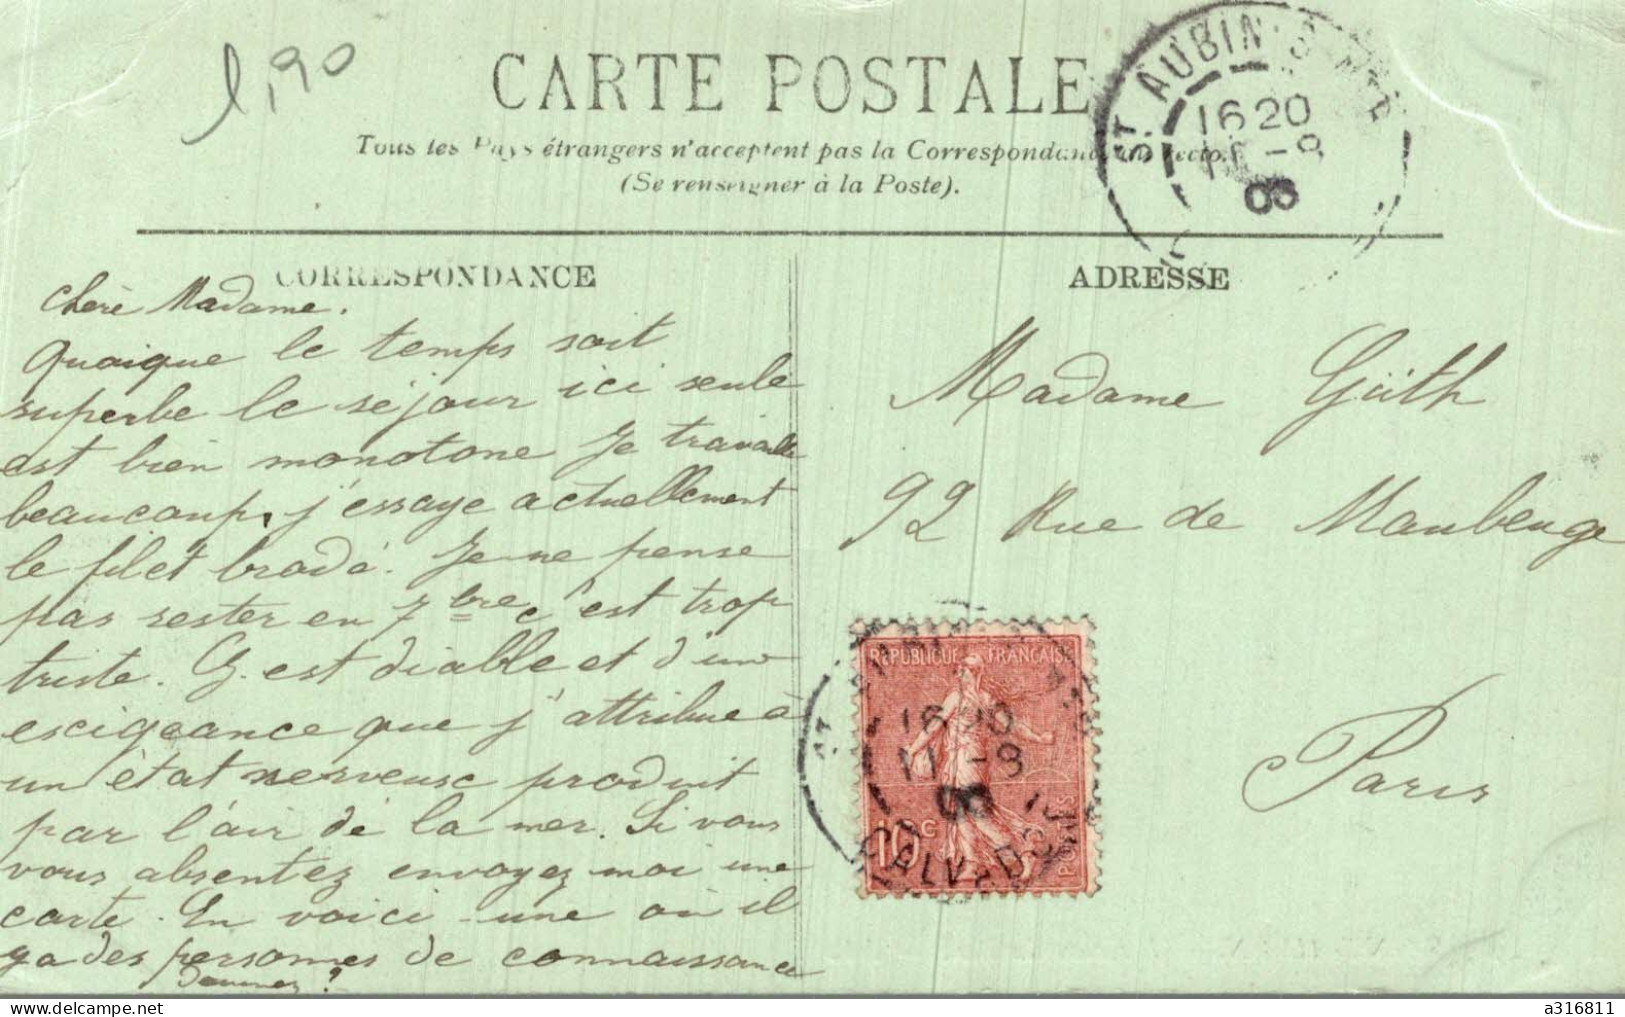 1,90
CARTE POSTALE
Tous les Pays étrangers n'acceptent pas la Correspondance au recto.
(Se renseigner à la Poste).
ST AUBIN-S-MER
16 20
11 -9
06
CORRESPONDANCE
Chère Madame.
Quoique le temps soit
superbe le séjour ici seule
est bien monotone Je travaille
beaucoup, j'essaye actuellement
le filet brodé. Je ne pense
pas rester en 7bre c'est trop
triste. G. est diable et d'une
escigeance que j'attribue à
un état nerveuse produit
par l'air de la mer. Si vous
vous absentez envoyez moi une
carte. En voici une où il
ya des personnes de connaissance
ADRESSE
Madame Güth
92 Rue de Maubeuge
Paris
REPUBLIQUE FRANÇAISE
10 c
POSTES
ST AUBIN
16 20
11 -9
06
CALVADOS
a316811